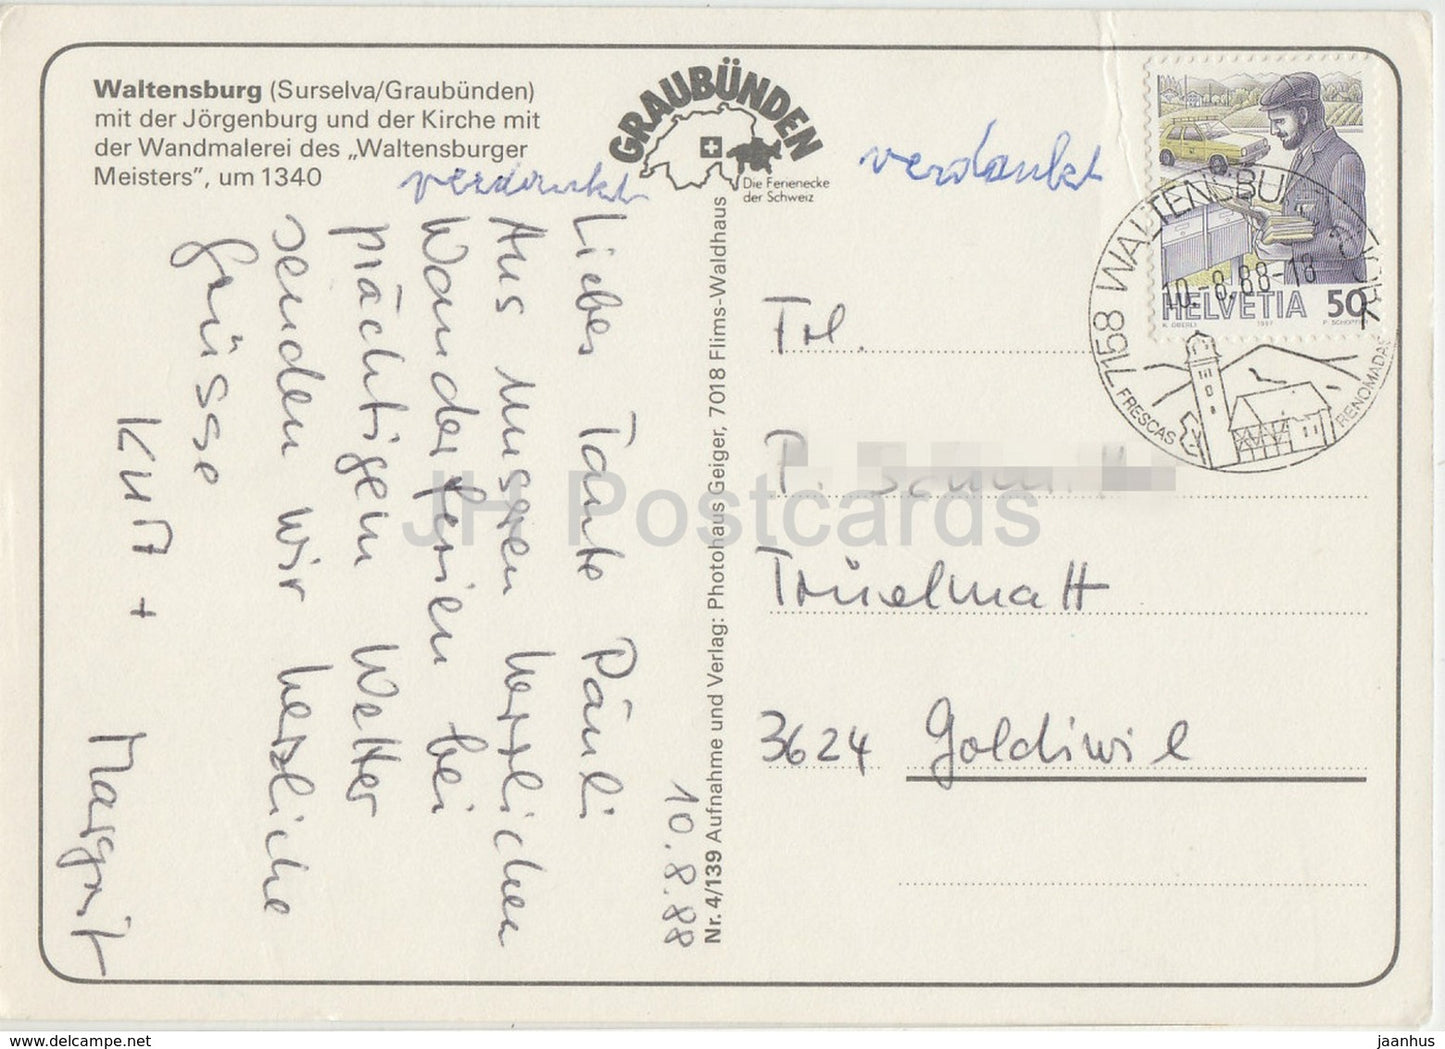 Waltensburg (Surselva/Graubünden)
mit der Jörgenburg und der Kirche mit
der Wandmalerei des „Waltensburger
Meisters”, um 1340
GRAUBÜNDEN
Die Ferienecke
der Schweiz
verdankt
verdankt
10.8.88
Liebes Tante Päuli
Aus unseren herrlichen
Wanderferien bei
prächtigem Wetter
senden wir herzliche
Grüsse
Kurt +
Margrit
Nr. 4/139 Aufnahme und Verlag: Photohaus Geiger, 7018 Flims-Waldhaus
HELVETIA 50
K. OBERLI 1987
7158 WALTENSBURG/VUORZ
10.-8.88-18
FRESCAS RENOMADAS
Frl.
P.
Trüelmatt
3624 Goldiwil
JH Postcards
delcampe.net
jaanhus